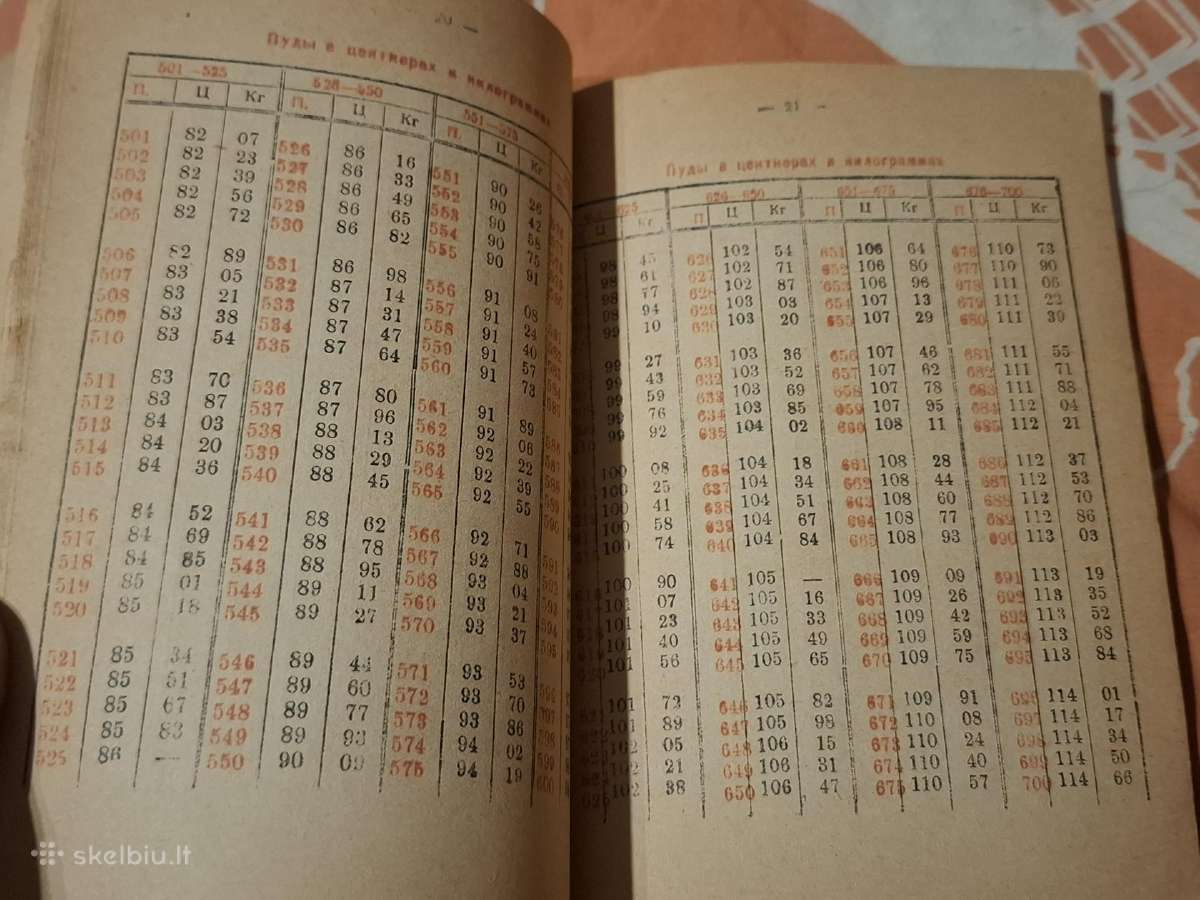 20 —
Пуды в центнерах и килограммах
501—525 526—550 551—575
П. Ц Кг П. Ц Кг П. Ц Кг
501 82 07 526 86 16 551 90 26
502 82 23 527 86 33 552 90 42
503 82 39 528 86 49 553 90 58
504 82 56 529 86 65 554 90 75
505 82 72 530 86 82 555 90 91
506 82 89 531 86 98 556 91 08
507 83 05 532 87 14 557 91 24
508 83 21 533 87 31 558 91 40
509 83 38 534 87 47 559 91 57
510 83 54 535 87 64 560 91 73
511 83 70 536 87 80 561 91 89
512 83 87 537 87 96 562 92 06
513 84 03 538 88 13 563 92 22
514 84 20 539 88 29 564 92 39
515 84 36 540 88 45 565 92 55
516 84 52 541 88 62 566 92 71
517 84 69 542 88 78 567 92 88
518 84 85 543 88 95 568 93 04
519 85 01 544 89 11 569 93 21
520 85 18 545 89 27 570 93 37
521 85 34 546 89 44 571 93 53
522 85 51 547 89 60 572 93 70
523 85 67 548 89 77 573 93 86
524 85 83 549 89 93 574 94 02
525 86 — 550 90 09 575 94 19
— 21 —
Пуды в центнерах и килограммах
626—650 651—675 676—700
Ц Кг П. Ц Кг П. Ц Кг П. Ц Кг
98 45 626 102 54 651 106 64 676 110 73
98 61 627 102 71 652 106 80 677 110 90
98 77 628 102 87 653 106 96 678 111 06
98 94 629 103 03 654 107 13 679 111 22
99 10 630 103 20 655 107 29 680 111 39
99 27 631 103 36 656 107 46 681 111 55
99 43 632 103 52 657 107 62 682 111 71
99 59 633 103 69 658 107 78 683 111 88
99 76 634 103 85 659 107 95 684 112 04
99 92 635 104 02 660 108 11 685 112 21
100 08 636 104 18 661 108 28 686 112 37
100 25 637 104 34 662 108 44 687 112 53
100 41 638 104 51 663 108 60 688 112 70
100 58 639 104 67 664 108 77 689 112 86
100 74 640 104 84 665 108 93 690 113 03
100 90 641 105 — 666 109 09 691 113 19
101 07 642 105 16 667 109 26 692 113 35
101 23 643 105 33 668 109 42 693 113 52
101 40 644 105 49 669 109 59 694 113 68
101 56 645 105 65 670 109 75 695 113 84
101 72 646 105 82 671 109 91 696 114 01
101 89 647 105 98 672 110 08 697 114 17
102 05 648 106 15 673 110 24 698 114 34
102 21 649 106 31 674 110 40 699 114 50
102 38 650 106 47 675 110 57 700 114 66
skelbiu.lt